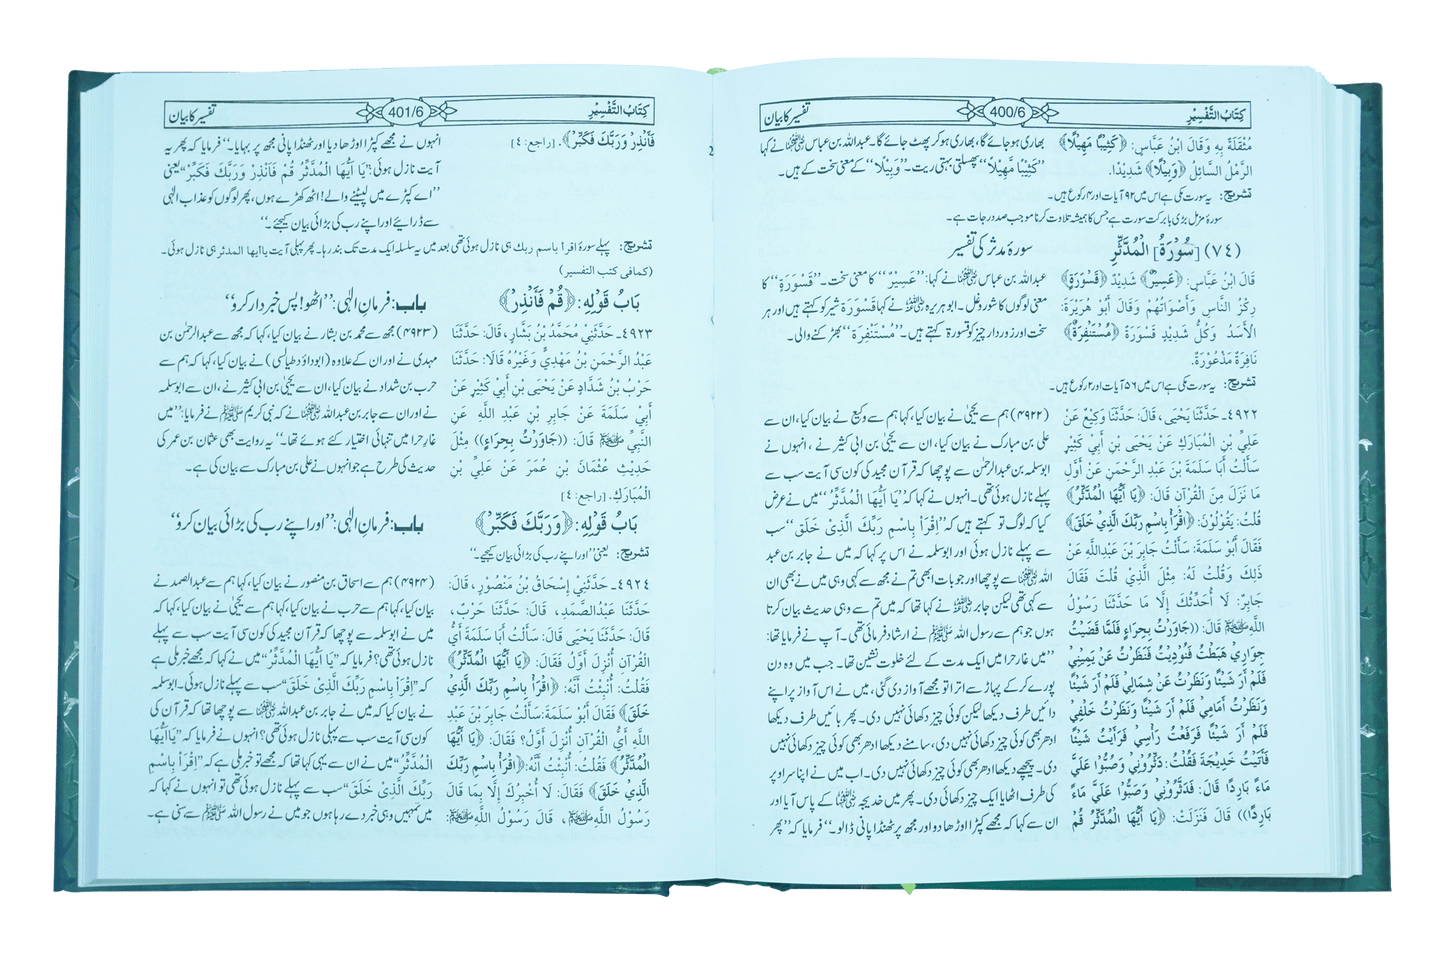 كِتَابُ التَّفْسِيْرِ
400/6
تفسیر کا بیان
مُثْقَلَةٌ بِهِ وَقَالَ ابْنُ عَبَّاسٍ: ﴿كَثِيبًا مَهِيلًا﴾
الرَّمْلُ السَّائِلُ ﴿وَبِيْلًا﴾ شَدِيْدًا.
بھاری ہو جائے گا، بھاری ہو کر پھٹ جائے گا۔ عبداللہ بن عباس رضی اللہ عنہما نے کہا
’’كَثِيْبًا مَّهِيْلًا‘‘ پھسلتی بہتی ریت۔ ’’وَبِيْلًا‘‘ کے معنی سخت کے ہیں۔
تشریح: یہ سورت مکی ہے اس میں ۹۲ آیات اور ۴ رکوع ہیں۔
سورۂ مزمل بڑی بابرکت سورت ہے جس کا ہمیشہ تلاوت کرنا موجب صد درجات ہے۔
(٧٤) [سُوْرَةُ] الْمُدَّثِّرِ
سورۂ مدثر کی تفسیر
قَالَ ابْنُ عَبَّاسٍ: ﴿عَسِيْرٌ﴾ شَدِيْدٌ ﴿قَسْوَرَةٍ﴾
رِكْزُ النَّاسِ وَأَصْوَاتُهُمْ وَقَالَ أَبُوْ هُرَيْرَةَ:
الْأَسَدُ وَكُلُّ شَدِيْدٍ قَسْوَرَةٌ ﴿مُسْتَنْفِرَةٌ﴾
نَافِرَةٌ مَذْعُوْرَةٌ.
عبداللہ بن عباس رضی اللہ عنہما نے کہا: ’’عَسِيْرٌ‘‘ کا معنی سخت۔ ’’قَسْوَرَةٍ‘‘ کا
معنی لوگوں کا شور وغل۔ ابوہریرہ رضی اللہ عنہ نے کہا قَسْوَرَة شیر کو کہتے ہیں اور ہر
سخت اور زوردار چیز کو قسورة کہتے ہیں۔ ’’مُسْتَنْفِرَة‘‘ بھڑکنے والی۔
تشریح: یہ سورت مکی ہے اس میں ۵۶ آیات اور ۲ رکوع ہیں۔
٤٩٢٢ـ حَدَّثَنَا يَحْيَى، قَالَ: حَدَّثَنَا وَكِيْعٌ عَنْ
عَلِيِّ بْنِ الْمُبَارَكِ عَنْ يَحْيَى بْنِ أَبِي كَثِيْرٍ
سَأَلْتُ أَبَا سَلَمَةَ بْنَ عَبْدِ الرَّحْمَنِ عَنْ أَوَّلِ
مَا نَزَلَ مِنَ الْقُرْآنِ قَالَ: ﴿يَا أَيُّهَا الْمُدَّثِّرُ﴾
قُلْتُ: يَقُوْلُوْنَ: ﴿اقْرَأْ بِاسْمِ رَبِّكَ الَّذِيْ خَلَقَ﴾
فَقَالَ أَبُوْ سَلَمَةَ: سَأَلْتُ جَابِرَ بْنَ عَبْدِاللَّهِ عَنْ
ذَلِكَ وَقُلْتُ لَهُ: مِثْلَ الَّذِيْ قُلْتَ فَقَالَ
جَابِرٌ: لَا أُحَدِّثُكَ إِلَّا مَا حَدَّثَنَا رَسُوْلُ
اللَّهِ ﷺ قَالَ: ((جَاوَرْتُ بِحِرَاءٍ فَلَمَّا قَضَيْتُ
جِوَارِيْ هَبَطْتُ فَنُوْدِيْتُ فَنَظَرْتُ عَنْ يَمِيْنِيْ
فَلَمْ أَرَ شَيْئًا وَنَظَرْتُ عَنْ شِمَالِيْ فَلَمْ أَرَ شَيْئًا
وَنَظَرْتُ أَمَامِيْ فَلَمْ أَرَ شَيْئًا وَنَظَرْتُ خَلْفِيْ
فَلَمْ أَرَ شَيْئًا فَرَفَعْتُ رَأْسِيْ فَرَأَيْتُ شَيْئًا
فَأَتَيْتُ خَدِيْجَةَ فَقُلْتُ: دَثِّرُوْنِيْ وَصُبُّوْا عَلَيَّ
مَاءً بَارِدًا قَالَ: فَدَثَّرُوْنِيْ وَصَبُّوْا عَلَيَّ مَاءً
بَارِدًا)) قَالَ فَنَزَلَتْ: ﴿يَا أَيُّهَا الْمُدَّثِّرُ قُمْ
(۴۹۲۲) ہم سے یحییٰ نے بیان کیا، کہا ہم سے وکیع نے بیان کیا، ان سے
علی بن مبارک نے بیان کیا، ان سے یحییٰ بن ابی کثیر نے، انہوں نے
ابوسلمہ بن عبدالرحمٰن سے پوچھا کہ قرآن مجید کی کون سی آیت سب سے
پہلے نازل ہوئی تھی۔ انہوں نے کہا کہ ’’يَا أَيُّهَا الْمُدَّثِّرُ‘‘ میں نے عرض
کیا کہ لوگ تو کہتے ہیں کہ ’’اقْرَأْ بِاسْمِ رَبِّكَ الَّذِيْ خَلَقَ‘‘ سب
سے پہلے نازل ہوئی اور ابوسلمہ نے اس پر کہا کہ میں نے جابر بن عبد
اللہ رضی اللہ عنہما سے پوچھا اور جو بات ابھی تم نے مجھ سے کہی وہی میں نے بھی ان
سے کہی تھی لیکن جابر رضی اللہ عنہ نے کہا تھا کہ میں تم سے وہی حدیث بیان کرتا
ہوں جو ہم سے رسول اللہ ﷺ نے ارشاد فرمائی تھی۔ آپ نے فرمایا تھا:
’’میں غار حرا میں ایک مدت کے لئے خلوت نشین تھا۔ جب میں وہ دن
پورے کر کے پہاڑ سے اترا تو مجھے آواز دی گئی، میں نے اس آواز پر اپنے
دائیں طرف دیکھا لیکن کوئی چیز دکھائی نہیں دی۔ پھر بائیں طرف دیکھا
ادھر بھی کوئی چیز دکھائی نہیں دی، سامنے دیکھا ادھر بھی کوئی چیز دکھائی نہیں
دی۔ پیچھے دیکھا ادھر بھی کوئی چیز دکھائی نہیں دی۔ اب میں نے اپنا سر اوپر
کی طرف اٹھایا ایک چیز دکھائی دی۔ پھر میں خدیجہ رضی اللہ عنہا کے پاس آیا اور
ان سے کہا کہ مجھے کپڑا اوڑھا دو اور مجھ پر ٹھنڈا پانی ڈالو۔‘‘ فرمایا کہ ’’پھر
كِتَابُ التَّفْسِيْرِ
401/6
تفسیر کا بیان
فَأَنْذِرْ وَرَبَّكَ فَكَبِّرْ﴾. [راجع: ٤]
انہوں نے مجھے کپڑا اوڑھا دیا اور ٹھنڈا پانی مجھ پر بہایا۔‘‘ فرمایا کہ پھر یہ
آیت نازل ہوئی: ’’يَا أَيُّهَا الْمُدَّثِّرُ قُمْ فَأَنْذِرْ وَرَبَّكَ فَكَبِّرْ‘‘ یعنی
’’اے کپڑے میں لپیٹنے والے! اٹھ کھڑے ہوں، پھر لوگوں کو عذاب الٰہی
سے ڈرائیے اور اپنے رب کی بڑائی بیان کیجئے۔‘‘
تشریح: پہلے سورۂ اقرأ باسم ربك ہی نازل ہوئی تھی بعد میں یہ سلسلہ ایک مدت تک بند رہا۔ پھر پہلی آیت یاایها المدثر ہی نازل ہوئی۔
(كمافی كتب التفسير)
بَابُ قَوْلِهِ: ﴿قُمْ فَأَنْذِرْ﴾
باب: فرمان الٰہی: ’’اٹھو! پس خبردار کرو‘‘
٤٩٢٣ـ حَدَّثَنِيْ مُحَمَّدُ بْنُ بَشَّارٍ، قَالَ: حَدَّثَنَا
عَبْدُ الرَّحْمَنِ بْنُ مَهْدِيٍّ وَغَيْرُهُ قَالَا: حَدَّثَنَا
حَرْبُ بْنُ شَدَّادٍ عَنْ يَحْيَى بْنِ أَبِيْ كَثِيْرٍ عَنْ
أَبِيْ سَلَمَةَ عَنْ جَابِرِ بْنِ عَبْدِ اللَّهِ عَنِ
النَّبِيِّ ﷺ قَالَ: ((جَاوَرْتُ بِحِرَاءٍ)) مِثْلَ
حَدِيْثِ عُثْمَانَ بْنِ عُمَرَ عَنْ عَلِيِّ بْنِ
الْمُبَارَكِ. [راجع: ٤]
(۴۹۲۳) مجھ سے محمد بن بشار نے بیان کیا، کہا کہ مجھ سے عبدالرحمٰن بن
مہدی نے اور ان کے علاوہ (ابوداؤد طیالسی) نے بیان کیا، کہا کہ ہم سے
حرب بن شداد نے بیان کیا، ان سے یحییٰ بن ابی کثیر نے، ان سے ابوسلمہ
نے اور ان سے جابر بن عبداللہ رضی اللہ عنہما نے کہ نبی کریم ﷺ نے فرمایا: ’’میں
غار حرا میں تنہائی اختیار کئے ہوئے تھا۔‘‘ یہ روایت بھی عثمان بن عمر کی
حدیث کی طرح ہے جو انہوں نے علی بن مبارک سے بیان کی ہے۔
بَابُ قَوْلِهِ: ﴿وَرَبَّكَ فَكَبِّرْ﴾
باب: فرمان الٰہی: ’’اور اپنے رب کی بڑائی بیان کرو‘‘
تشریح: یعنی ’’اور اپنے رب کی بڑائی بیان کیجئے۔‘‘
٤٩٢٤ـ حَدَّثَنِيْ إِسْحَاقُ بْنُ مَنْصُوْرٍ، قَالَ:
حَدَّثَنَا عَبْدُالصَّمَدِ، قَالَ: حَدَّثَنَا حَرْبٌ،
قَالَ: حَدَّثَنَا يَحْيَى قَالَ: سَأَلْتُ أَبَا سَلَمَةَ أَيُّ
الْقُرْآنِ أُنْزِلَ أَوَّلُ فَقَالَ: ﴿يَا أَيُّهَا الْمُدَّثِّرُ﴾
فَقُلْتُ: أُنْبِئْتُ أَنَّهُ: ﴿اقْرَأْ بِاسْمِ رَبِّكَ الَّذِيْ
خَلَقَ﴾ فَقَالَ أَبُوْ سَلَمَةَ: سَأَلْتُ جَابِرَ بْنَ عَبْدِ
اللَّهِ أَيُّ الْقُرْآنِ أُنْزِلَ أَوَّلُ؟ فَقَالَ: ﴿يَا أَيُّهَا
الْمُدَّثِّرُ﴾ فَقُلْتُ: أُنْبِئْتُ أَنَّهُ: ﴿اقْرَأْ بِاسْمِ رَبِّكَ
الَّذِيْ خَلَقَ﴾ فَقَالَ: لَا أُخْبِرُكَ إِلَّا بِمَا قَالَ
رَسُوْلُ اللَّهِ ﷺ، قَالَ رَسُوْلُ اللَّهِ ﷺ:
(۴۹۲۴) ہم سے اسحاق بن منصور نے بیان کیا، کہا ہم سے عبدالصمد نے
بیان کیا، کہا ہم سے حرب نے بیان کیا، کہا ہم سے یحییٰ نے بیان کیا، کہا کہ
میں نے ابوسلمہ سے پوچھا کہ قرآن مجید کی کون سی آیت سب سے پہلے
نازل ہوئی تھی؟ فرمایا کہ ’’يَا أَيُّهَا الْمُدَّثِّرُ‘‘ میں نے کہا کہ مجھے خبر ملی ہے
کہ ’’اقْرَأْ بِاسْمِ رَبِّكَ الَّذِيْ خَلَقَ‘‘ سب سے پہلے نازل ہوئی۔ ابوسلمہ
نے بیان کیا کہ میں نے جابر بن عبداللہ رضی اللہ عنہما سے پوچھا تھا کہ قرآن کی
کون سی آیت سب سے پہلی نازل ہوئی تھی؟ انہوں نے فرمایا کہ ’’يَا أَيُّهَا
الْمُدَّثِّرُ‘‘ میں نے ان سے یہی کہا تھا کہ مجھے تو خبر ملی ہے کہ ’’اقْرَأْ بِاسْمِ
رَبِّكَ الَّذِيْ خَلَقَ‘‘ سب سے پہلے نازل ہوئی تھی تو انہوں نے کہا کہ
میں تمہیں وہی خبر دے رہا ہوں جو میں نے رسول اللہ ﷺ سے سنی ہے۔